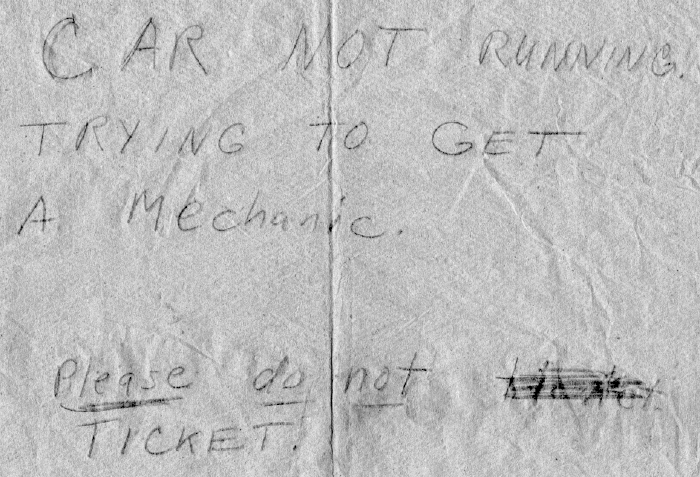 CAR NOT RUNNING.
TRYING TO GET
A Mechanic.
Please do not
TICKET!